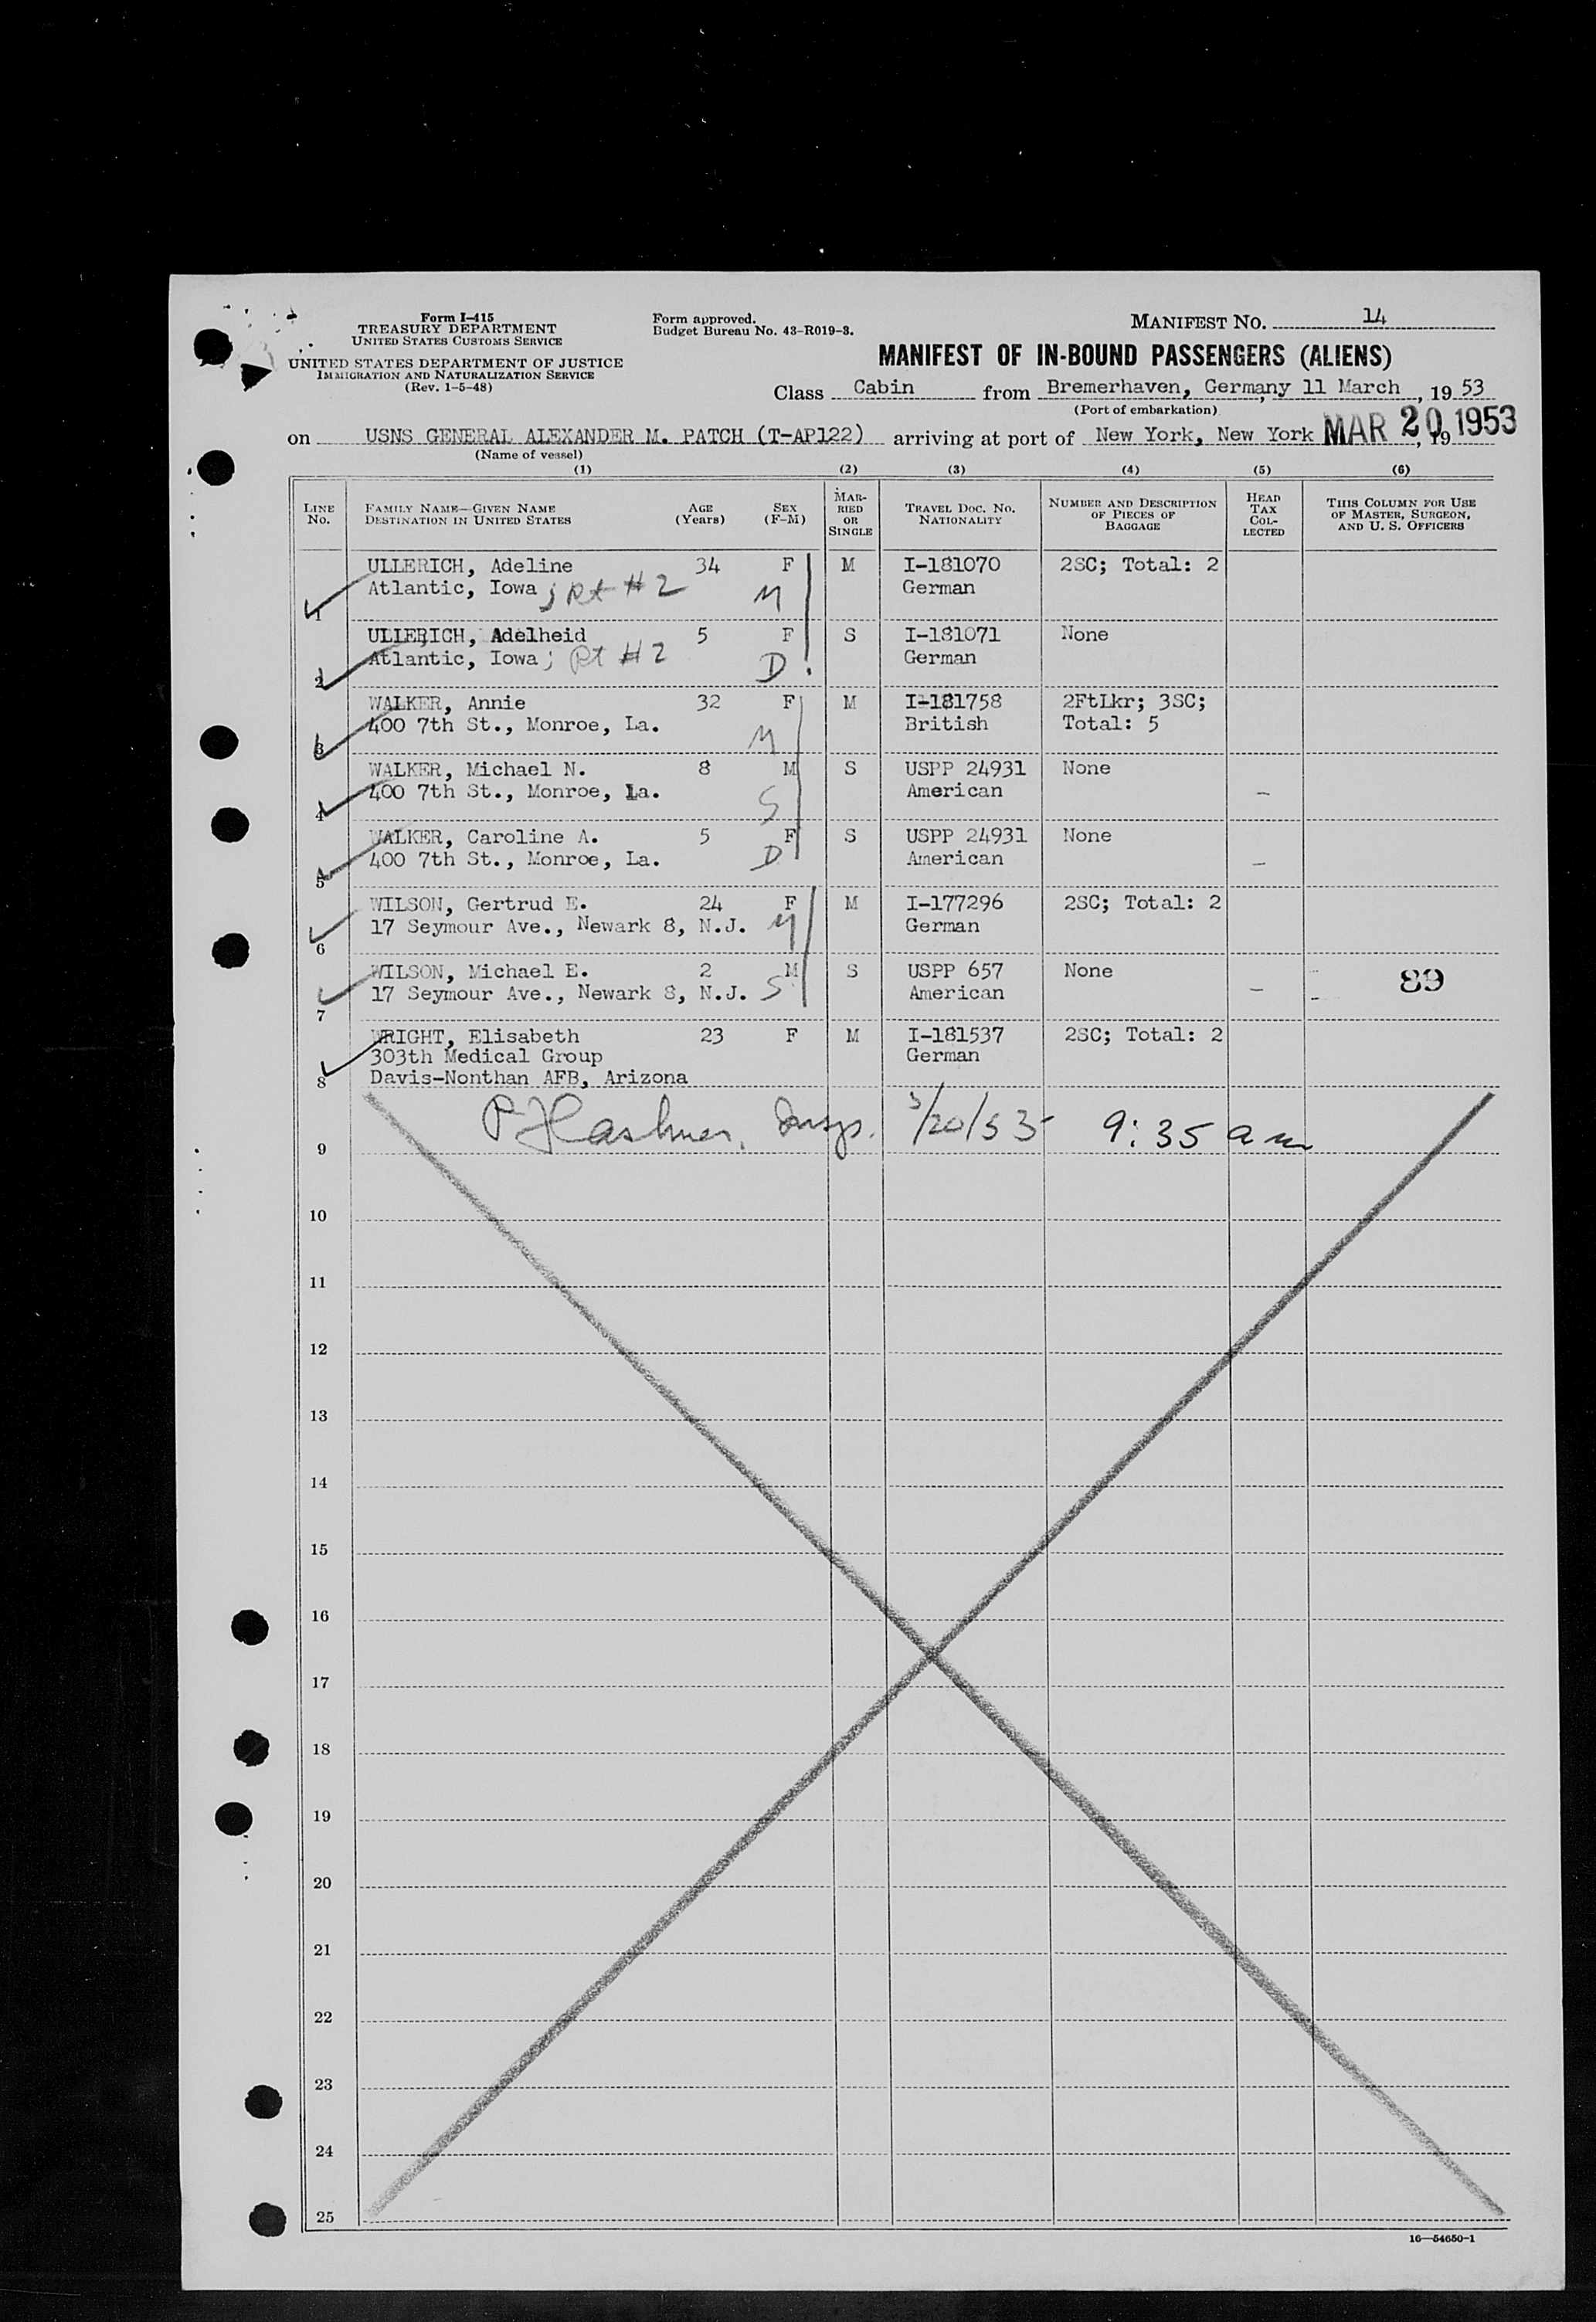 Form I-415
TREASURY DEPARTMENT
UNITED STATES CUSTOMS SERVICE
UNITED STATES DEPARTMENT OF JUSTICE
IMMIGRATION AND NATURALIZATION SERVICE
(Rev. 1-5-48)
Form approved.
Budget Bureau No. 43-R019-3.
MANIFEST NO. 14
MANIFEST OF IN-BOUND PASSENGERS (ALIENS)
Class Cabin from Bremerhaven, Germany 11 March, 19 53
(Port of embarkation)
on USNS GENERAL ALEXANDER M. PATCH (T-AP122) arriving at port of New York, New York MAR 20 1953, 19
(Name of vessel)
(1) (2) (3) (4) (5) (6)
LINE No. FAMILY NAME—GIVEN NAME DESTINATION IN UNITED STATES AGE (Years) SEX (F-M) MARRIED OR SINGLE TRAVEL DOC. NO. NATIONALITY NUMBER AND DESCRIPTION OF PIECES OF BAGGAGE HEAD TAX COLLECTED THIS COLUMN FOR USE OF MASTER, SURGEON, AND U. S. OFFICERS
ULLERICH, Adeline 34 F M I-181070 2SC; Total: 2
Atlantic, Iowa ; Rt #2 M German
1
ULLERICH, Adelheid 5 F S I-181071 None
Atlantic, Iowa ; Rt #2 D German
2
WALKER, Annie 32 F M I-181758 2FtLkr; 3SC;
400 7th St., Monroe, La. M British Total: 5
3
WALKER, Michael N. 8 M S USPP 24931 None
400 7th St., Monroe, La. S American –
4
WALKER, Caroline A. 5 F S USPP 24931 None
400 7th St., Monroe, La. D American –
5
WILSON, Gertrud E. 24 F M I-177296 2SC; Total: 2
17 Seymour Ave., Newark 8, N.J. M German
6
WILSON, Michael E. 2 M S USPP 657 None 89
17 Seymour Ave., Newark 8, N.J. S American –
7
WRIGHT, Elisabeth 23 F M I-181537 2SC; Total: 2
303th Medical Group German
8 Davis-Nonthan AFB, Arizona
Insp. 3/20/53 9:35 am
9
10
11
12
13
14
15
16
17
18
19
20
21
22
23
24
25
16—54650-1